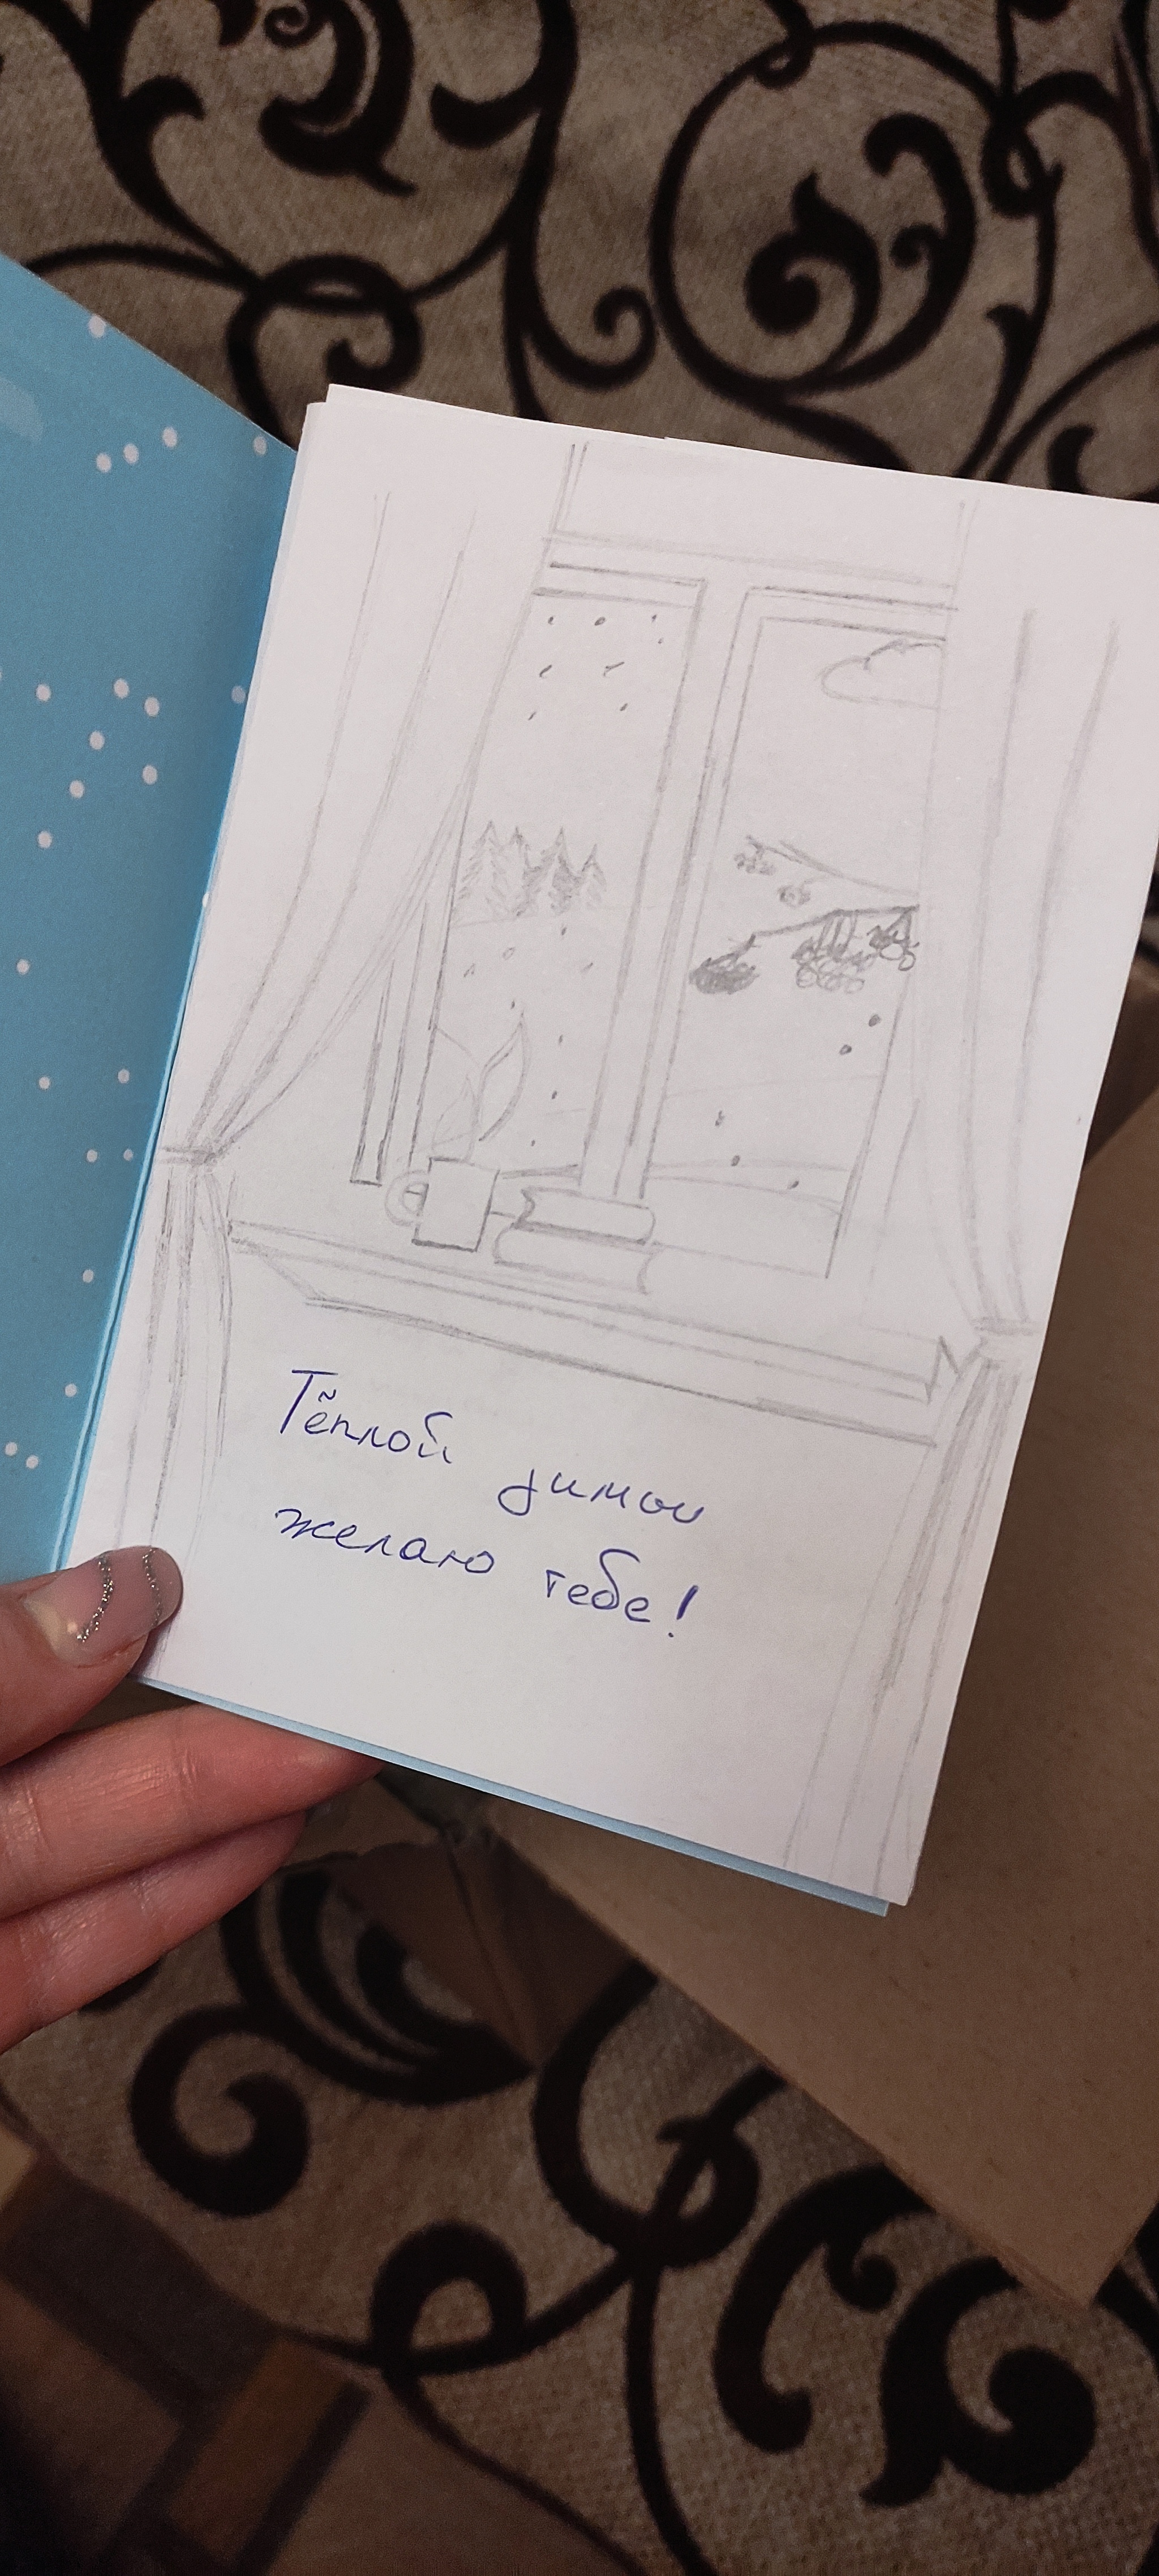 Тёплой
зимы
желаю тебе!